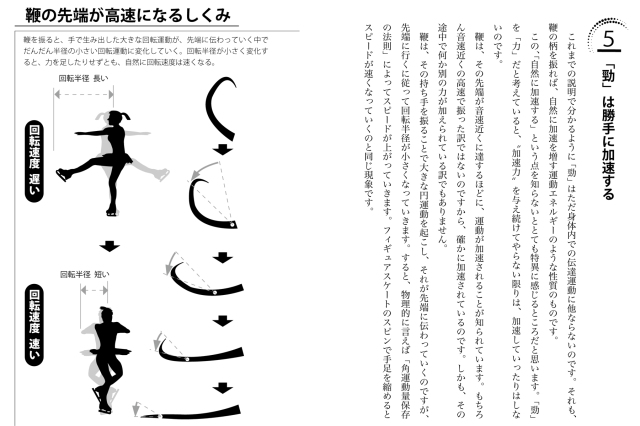 5
「勁」は勝手に加速する
これまでの説明で分かるように「勁」はただ身体内での伝達運動に他ならないのです。それも、
鞭の柄を振れば、自然に加速を増す運動エネルギーのような性質のものです。
この、「自然に加速する」という点を知らないととても特異に感じるところだと思います。「勁」
を「力」だと考えていると、〝加速力〟を与え続けてやらない限りは、加速していったりはしな
いのです。
鞭は、その先端が音速近くに達するほどに、運動が加速されることが知られています。もちろ
ん音速近くの高速で振った訳ではないのですから、確かに加速されているのです。しかも、その
途中で何か別の力が加えられている訳でもありません。
鞭は、その持ち手を振ることで大きな円運動を起こし、それが先端に伝わっていくのですが、
先端に行くに従って回転半径が小さくなっていきます。すると、物理的に言えば「角運動量保存
の法則」によってスピードが上がっていきます。フィギュアスケートのスピンで手足を縮めると
スピードが速くなっていくのと同じ現象です。
鞭の先端が高速になるしくみ
鞭を振ると、手で生み出した大きな回転運動が、先端に伝わっていく中で
だんだん半径の小さい回転運動に変化していく。回転半径が小さく変化す
ると、力を足したりせずとも、自然に回転速度は速くなる。
回転半径 長い
回転速度 遅い
回転半径 短い
回転速度 速い